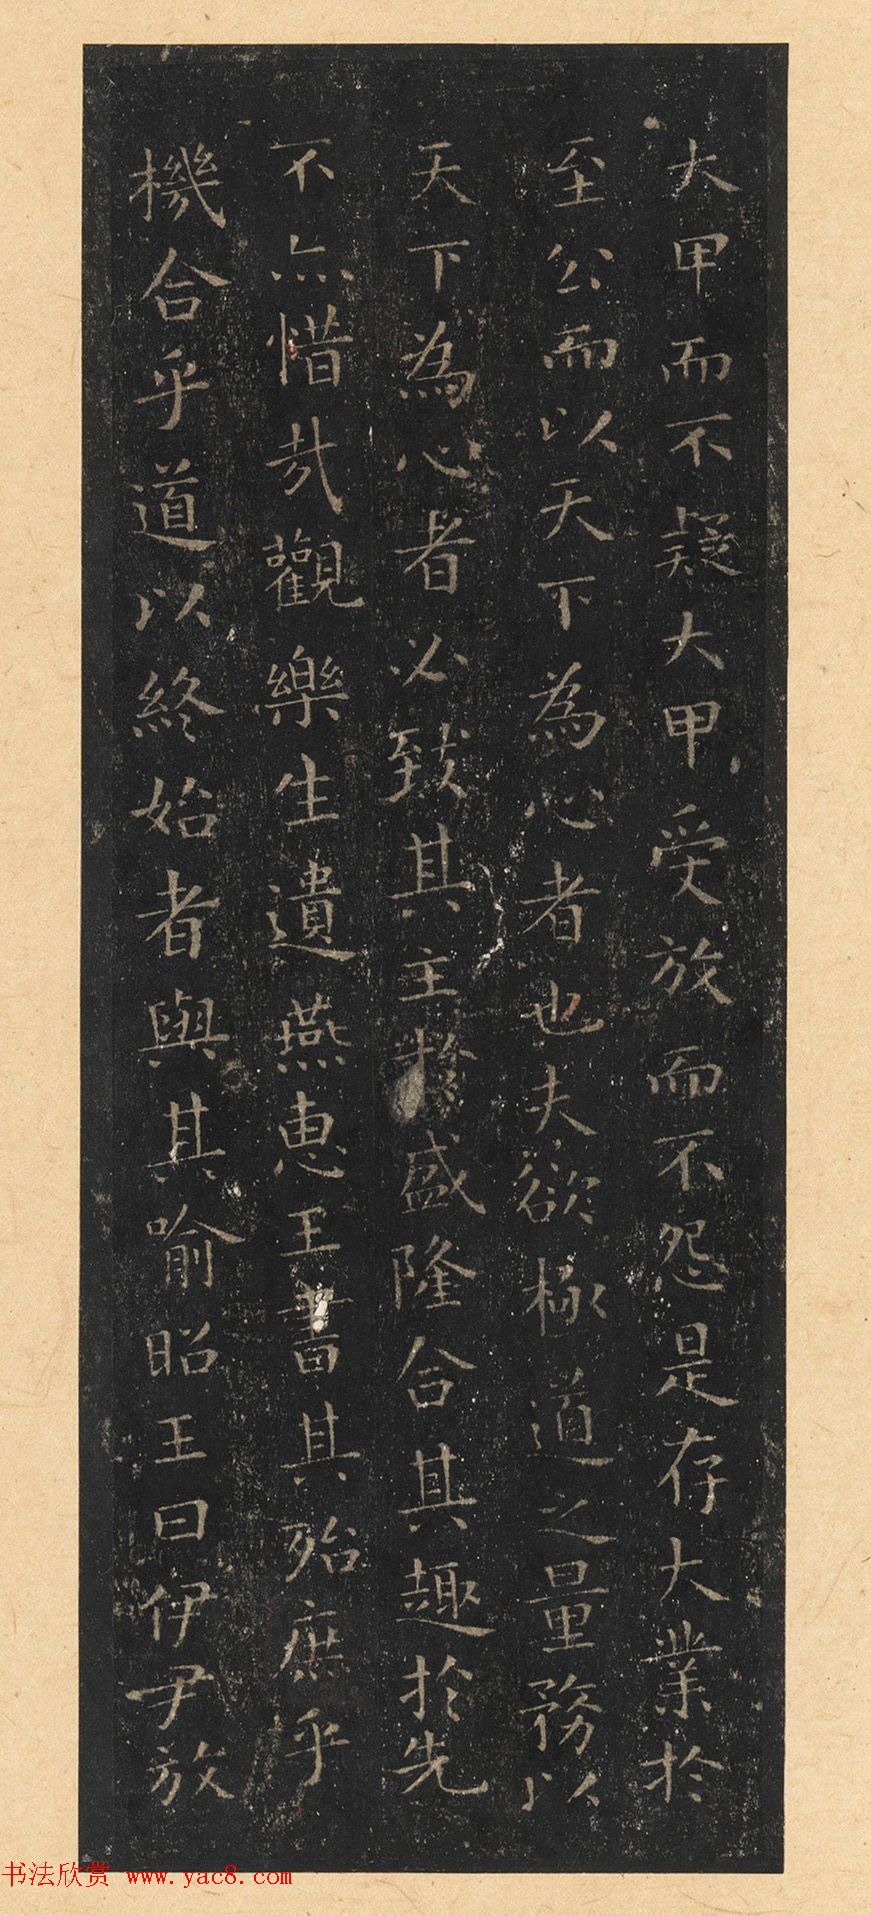 大甲而不疑大甲受放而不怨是存大業於
至公而以天下為心者也夫欲極道之量務以
天下為心者必致其主於盛隆合其趣於先
不亦惜哉觀樂生遺燕惠王書其殆庶乎
機合乎道以終始者與其喻昭王曰伊尹放
书法欣赏 www.yac8.com